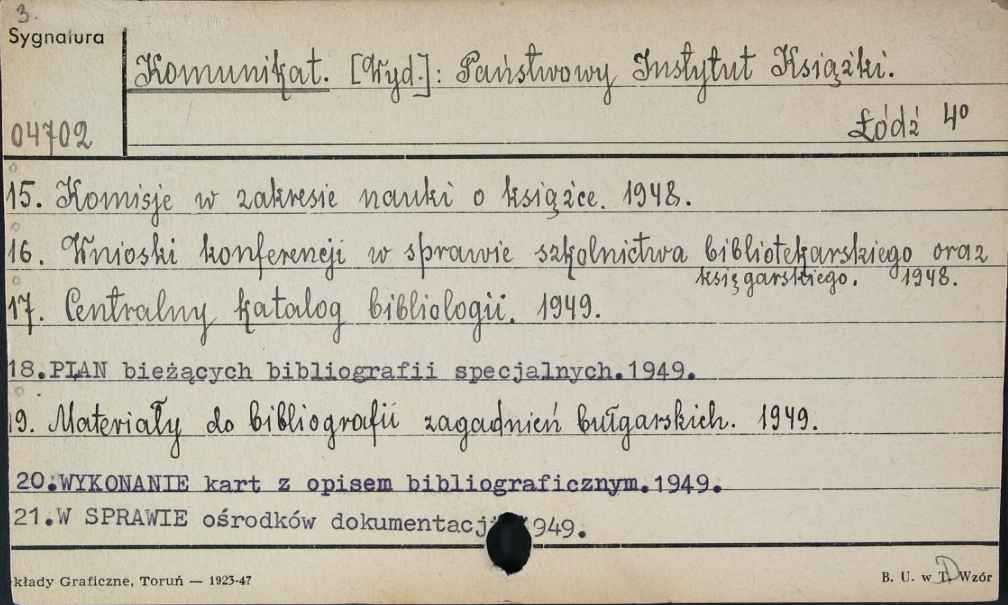 3.
Sygnatura
Komunikat. [Wyd.]: Państwowy Instytut Książki.
04702
Łódź 4°
15. Komisje w zakresie nauki o książce. 1948.
16. Wnioski konferencji w sprawie szkolnictwa bibliotekarskiego oraz
księgarskiego. 1948.
17. Centralny katalog bibliologii. 1949.
18.PLAN bieżących bibliografii specjalnych.1949.
19. Materiały do bibliografii zagadnień bułgarskich. 1949.
20.WYKONANIE kart z opisem bibliograficznym.1949.
21.W SPRAWIE ośrodków dokumentacj 949.
kłady Graficzne, Toruń — 1923-47
B. U. w T. D Wzór